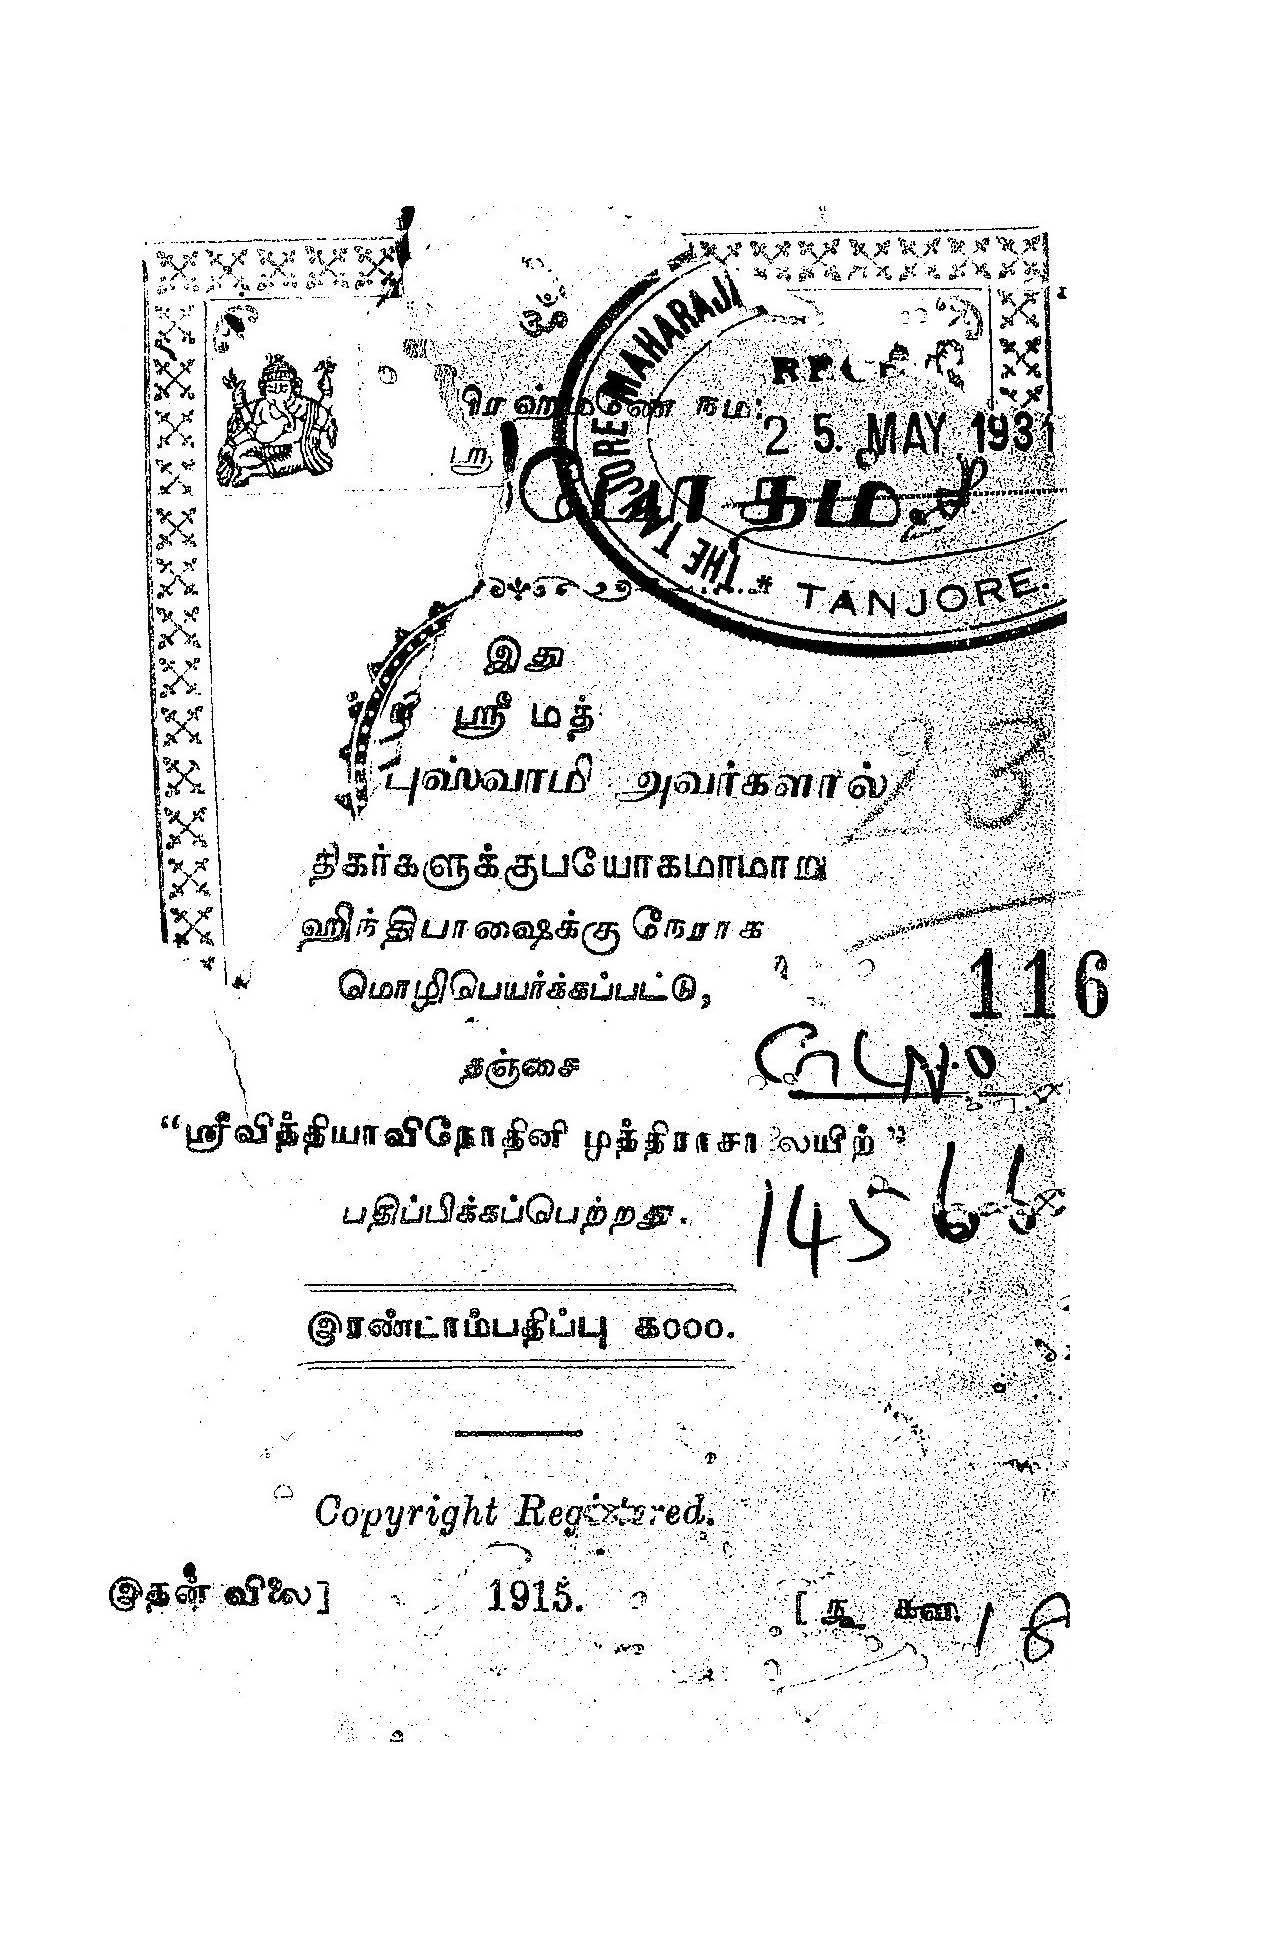 நம:
THE TANJORE MAHARAJI
25. MAY 1931
போதம்.
TANJORE.
இது
ஸ்ரீ மத்
புஸ்வாமி அவர்களால்
23
திகர்களுக்குபயோகமாமாறு
ஹிந்திபாஷைக்கு நேராக
மொழிபெயர்க்கப்பட்டு,
116
தஞ்சை
"ஸ்ரீவித்தியாவிநோதினி முத்திராசாலயிற்"
145
பதிப்பிக்கப்பெற்றது.
இரண்டாம்பதிப்பு க000.
Copyright Registered.
இதன் விலை] 1915. [ரூ